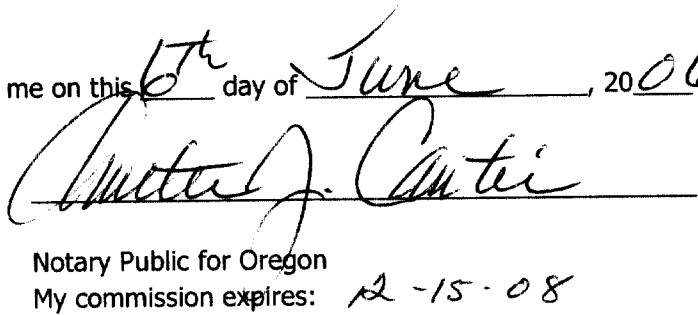 me on this 6th day of June, 2006
J.
Notary Public for Oregon
My commission expires: 12-15-08